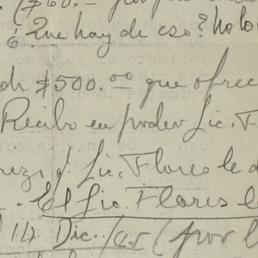 ($60.00
¿Que hay de eso? no lo
de $500.00 que ofrec
Recibo en poder Lic. F
Lic. Flores le d
- El Lic. Flores l
14 Dic./45 (por l